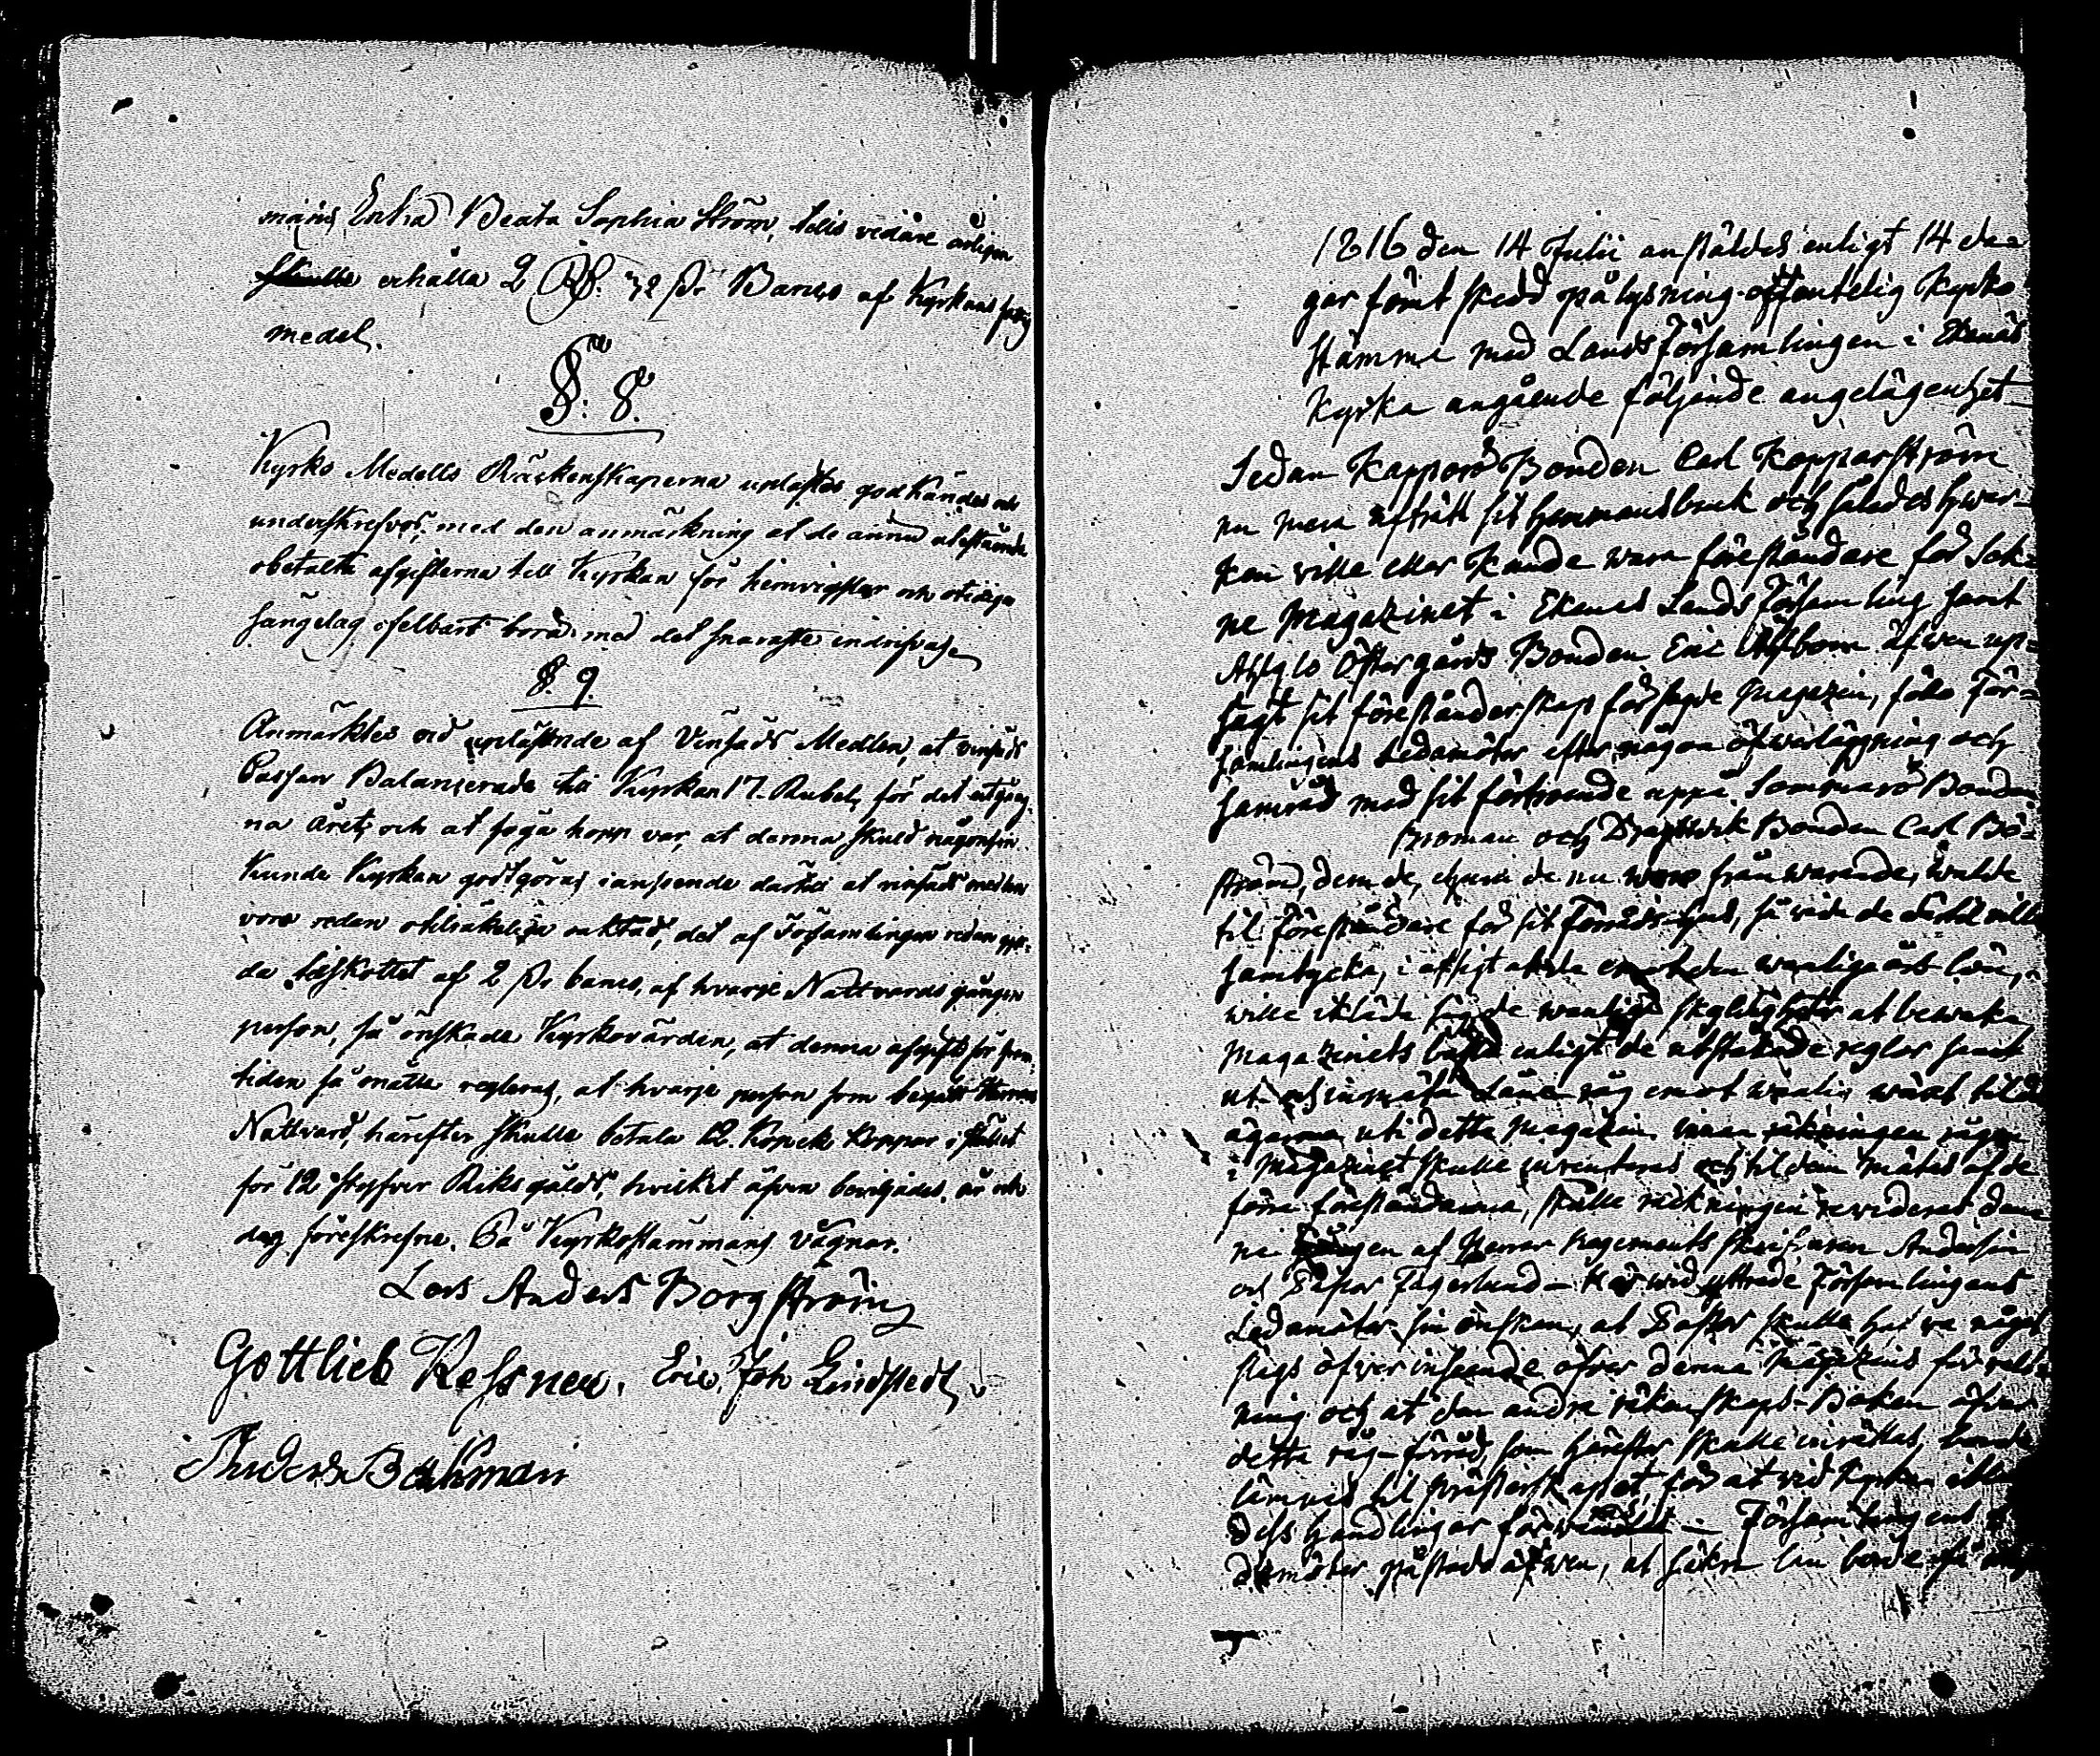 mans Enka Beata Sophia Ström, tills vidare årligen
skulle erhålla 2 Rb. 32 sk. Banco af Kyrkans fattig
medel.
§. 8.
Kyrko Medels Räkenskaperna uplästes godkändes och
underskrefvos, med den anmärkning at de ännu utestående
obetalta afgifterna till Kyrkan för hemvigslar och otidiga
sängelag ofelbart borde med det snaraste indrifvas.
§. 9.
Anmärktes vid upläsande af Vinsäds Medlen, at vinsäds
Cassan Balanserade till Kyrkan 17. Rubel, för det utgång-
na året, och at föga hopp var, at denna skuld någonsin
kunde Kyrkan godtgöras i anseende dertill at vinsäds medlen
voro redan otilräkeliga, det af Församlingen redan
da tilskottet af 2 sk. banco, af hvarje Nattvards gången
person, så önskade Kyrkovärden, at denna afgift för fram
tiden så måtte regleras, at hvarje person som begått Herrans
Nattvard, härefter skulle betala 12. Kopek Koppar i stället
för 12 styfver Riksgälds, hvilket äfven beviljades. år och
dag föreskrefne. På Kyrkostämmans vägnar.
Lars Anders Borgström
Gottlieb Ressner. Eric Joh Lindstedt
Anders Backman
1816 den 14 Julii anstäldes enligt 14 da-
gar förut skedd pålysning offentelig Kyrko
stämma med Landsförsamlingen i Ekenäs
Kyrka angående följande angelägenhet
Sedan Kappors Bonden Carl Kopparström
nu mera afträdt sit hemmansbruk och således hwar-
ken ville eller kunde wara föreståndare för Sok-
ne Magazinet i Ekenes Lands Församling samt
Östergårds Bonden Eric Alfbom äfwen up-
sagt sit föreståndarskap för sagde Magazin, så har För-
samlingens Ledamöter efter någon öfwerläggning och
samråd med sit förtroende uppå Sommarö Bonden
Broman och Bonden Carl Bo-
ström, dem de, ehuru de nu woro frånwarande, walde
til Föreståndare för sit Förråds-hus, så wida de dertil ville
samtycka, i afsigt at de emot den wanliga års lön,
wille ikläda sig de wanliga skyldigheter at bewaka
Magazinets bästa enligt de utstakade reglor samt
ut och inmäta Låne råg emot wanlig
ägarna uti detta Magazin. innan
i Magazinet skulle inventeras och til dem mätas af de
förra föreståndarna, skulle räkningen revideras denna
gången af Herrar Regements skrifvaren Andersin
och Pastor Fagerlund – Härwid yttrade Församlingens
Ledamöter sin önskan, at Pastor skulle hafva något
slags öfverinseende öfver denna Magazins förvalt-
ning och at den andra räkenskaps-Boken öfver
detta råg-förråd, som härefter skulle inrättas, borde
lämnas til Prästerskapet för at vid Kyrkan ibland
dess handlingar förwaras – Församlingens
damöter påstodo äfwen, at